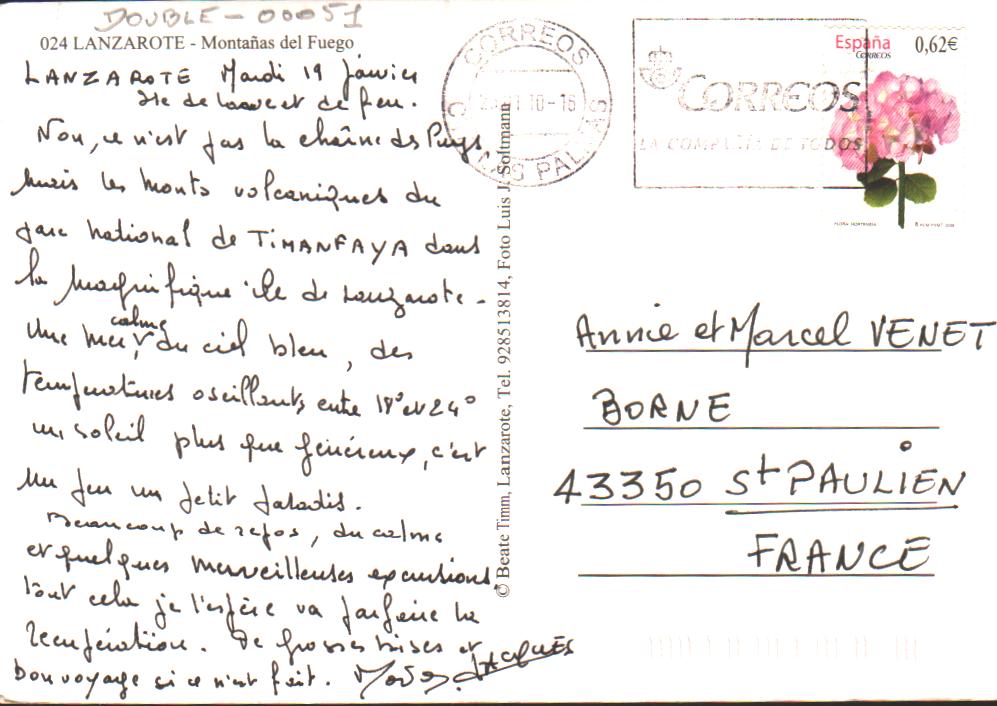 DOUBLE - 00051
024 LANZAROTE - Montañas del Fuego
LANZAROTE Mardi 19 Janvier
Ile de lave et de feu.
Non, ce n'est pas la chaîne des Puys,
mais les monts volcaniques du
parc national de TIMANFAYA dans
la magnifique île de Lanzarote -
calme
Une mer, du ciel bleu, des
températures oscillants entre 18° et 24°
un soleil plus que généreux, c'est
un peu un petit paradis.
Beaucoup de repos, du calme
et quelques merveilleuses excursions.
tout cela je l'espère va parfaire la
récupération. De grosses bises et
bon voyage si ce n'est fait.
JACQUES
© Beate Timm, Lanzarote, Tel. 928513814, Foto Luis J. Soltmann
CORREOS
LAS PALMAS
CORREOS
LA COMPAÑIA DE TODOS
España
CORREOS
0,62€
FLORA HORTENSIA
Annie et Marcel VENET
BORNE
43350 St PAULIEN
FRANCE